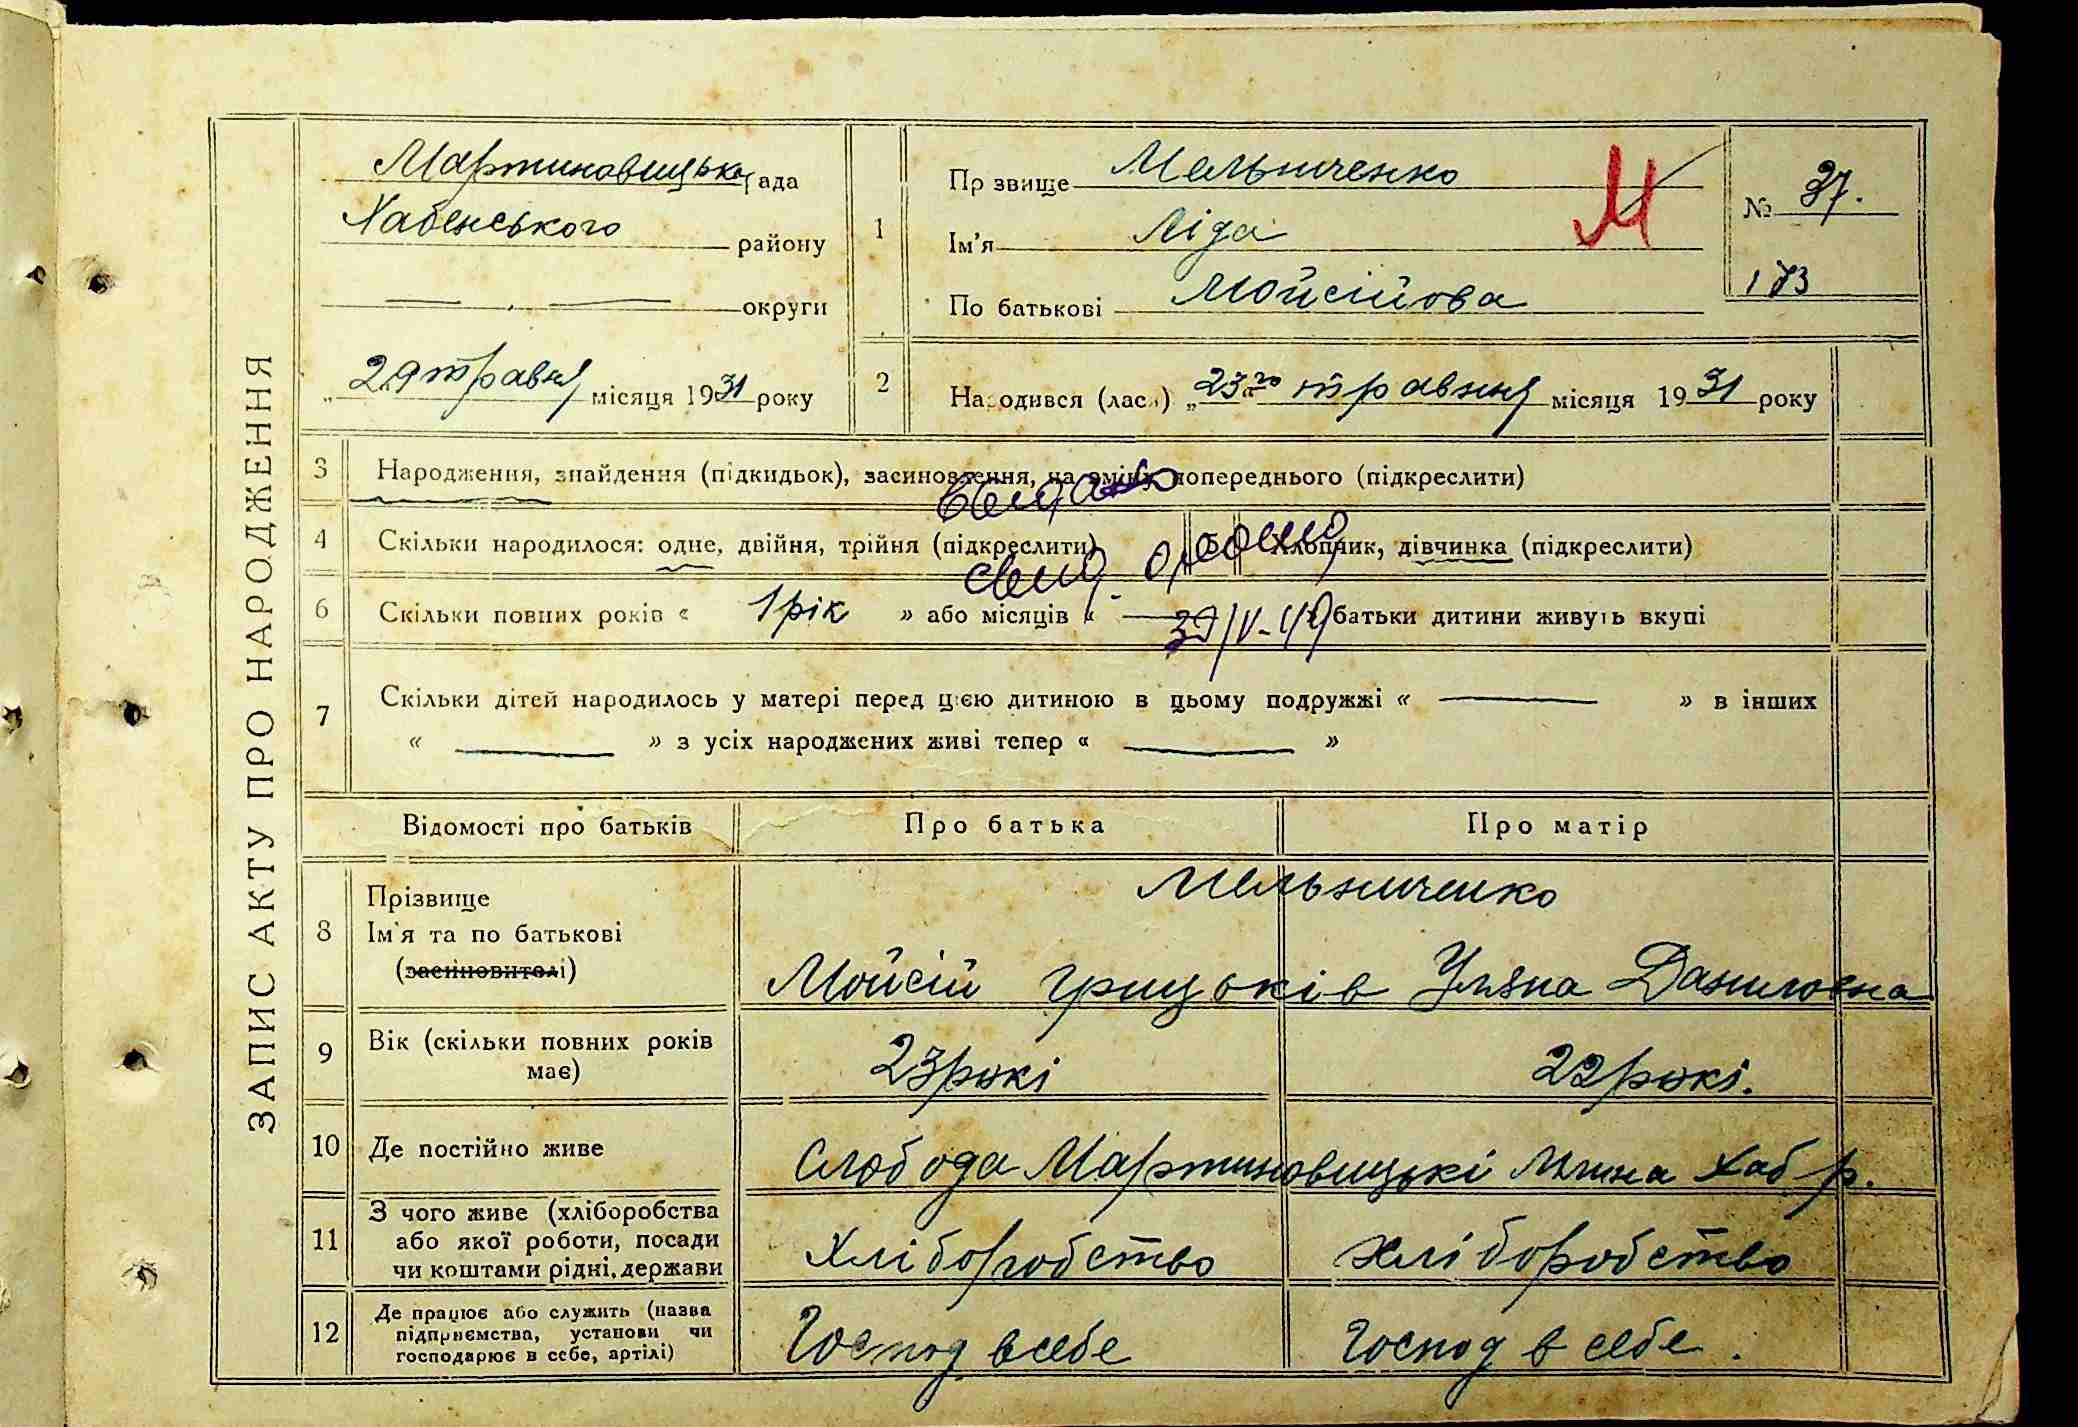 ЗАПИС АКТУ ПРО НАРОДЖЕННЯ
Мартиновицька рада
Хабенського району
— „ — округи
„29 травня місяця 1931 року
1 Прізвище Мельниченко
Ім'я Ліда
По батькові Мойсійова
М
№ 37.
173
2 Народився (лась) „23го травня місяця 1931 року
3 Народження, знайдення (підкидьок), засиновлення, на зміну попереднього (підкреслити)
4 Скільки народилося: одне, двійня, трійня (підкреслити) 5 Хлопчик, дівчинка (підкреслити)
6 Скільки повних років « 1 рік » або місяців « — батьки дитини живуть вкупі
7 Скільки дітей народилось у матері перед цією дитиною в цьому подружжі « — » в інших
« — » з усіх народжених живі тепер « — »
Відомості про батьків Про батька Про матір
8 Прізвище
Ім'я та по батькові
(засиновителі)
Мельниченко
Мойсій Грицьків Уляна Даниловна
9 Вік (скільки повних років має) 23 рокі 22 рокі.
10 Де постійно живе Слобода Мартиновицькі Хаб р.
11 З чого живе (хліборобства
або якої роботи, посади
чи коштами рідні, держави
Хліборобство Хліборобство
12 Де працює або служить (назва
підприємства, установи чи
господарює в себе, артілі)
Господ в себе Господ в себе.